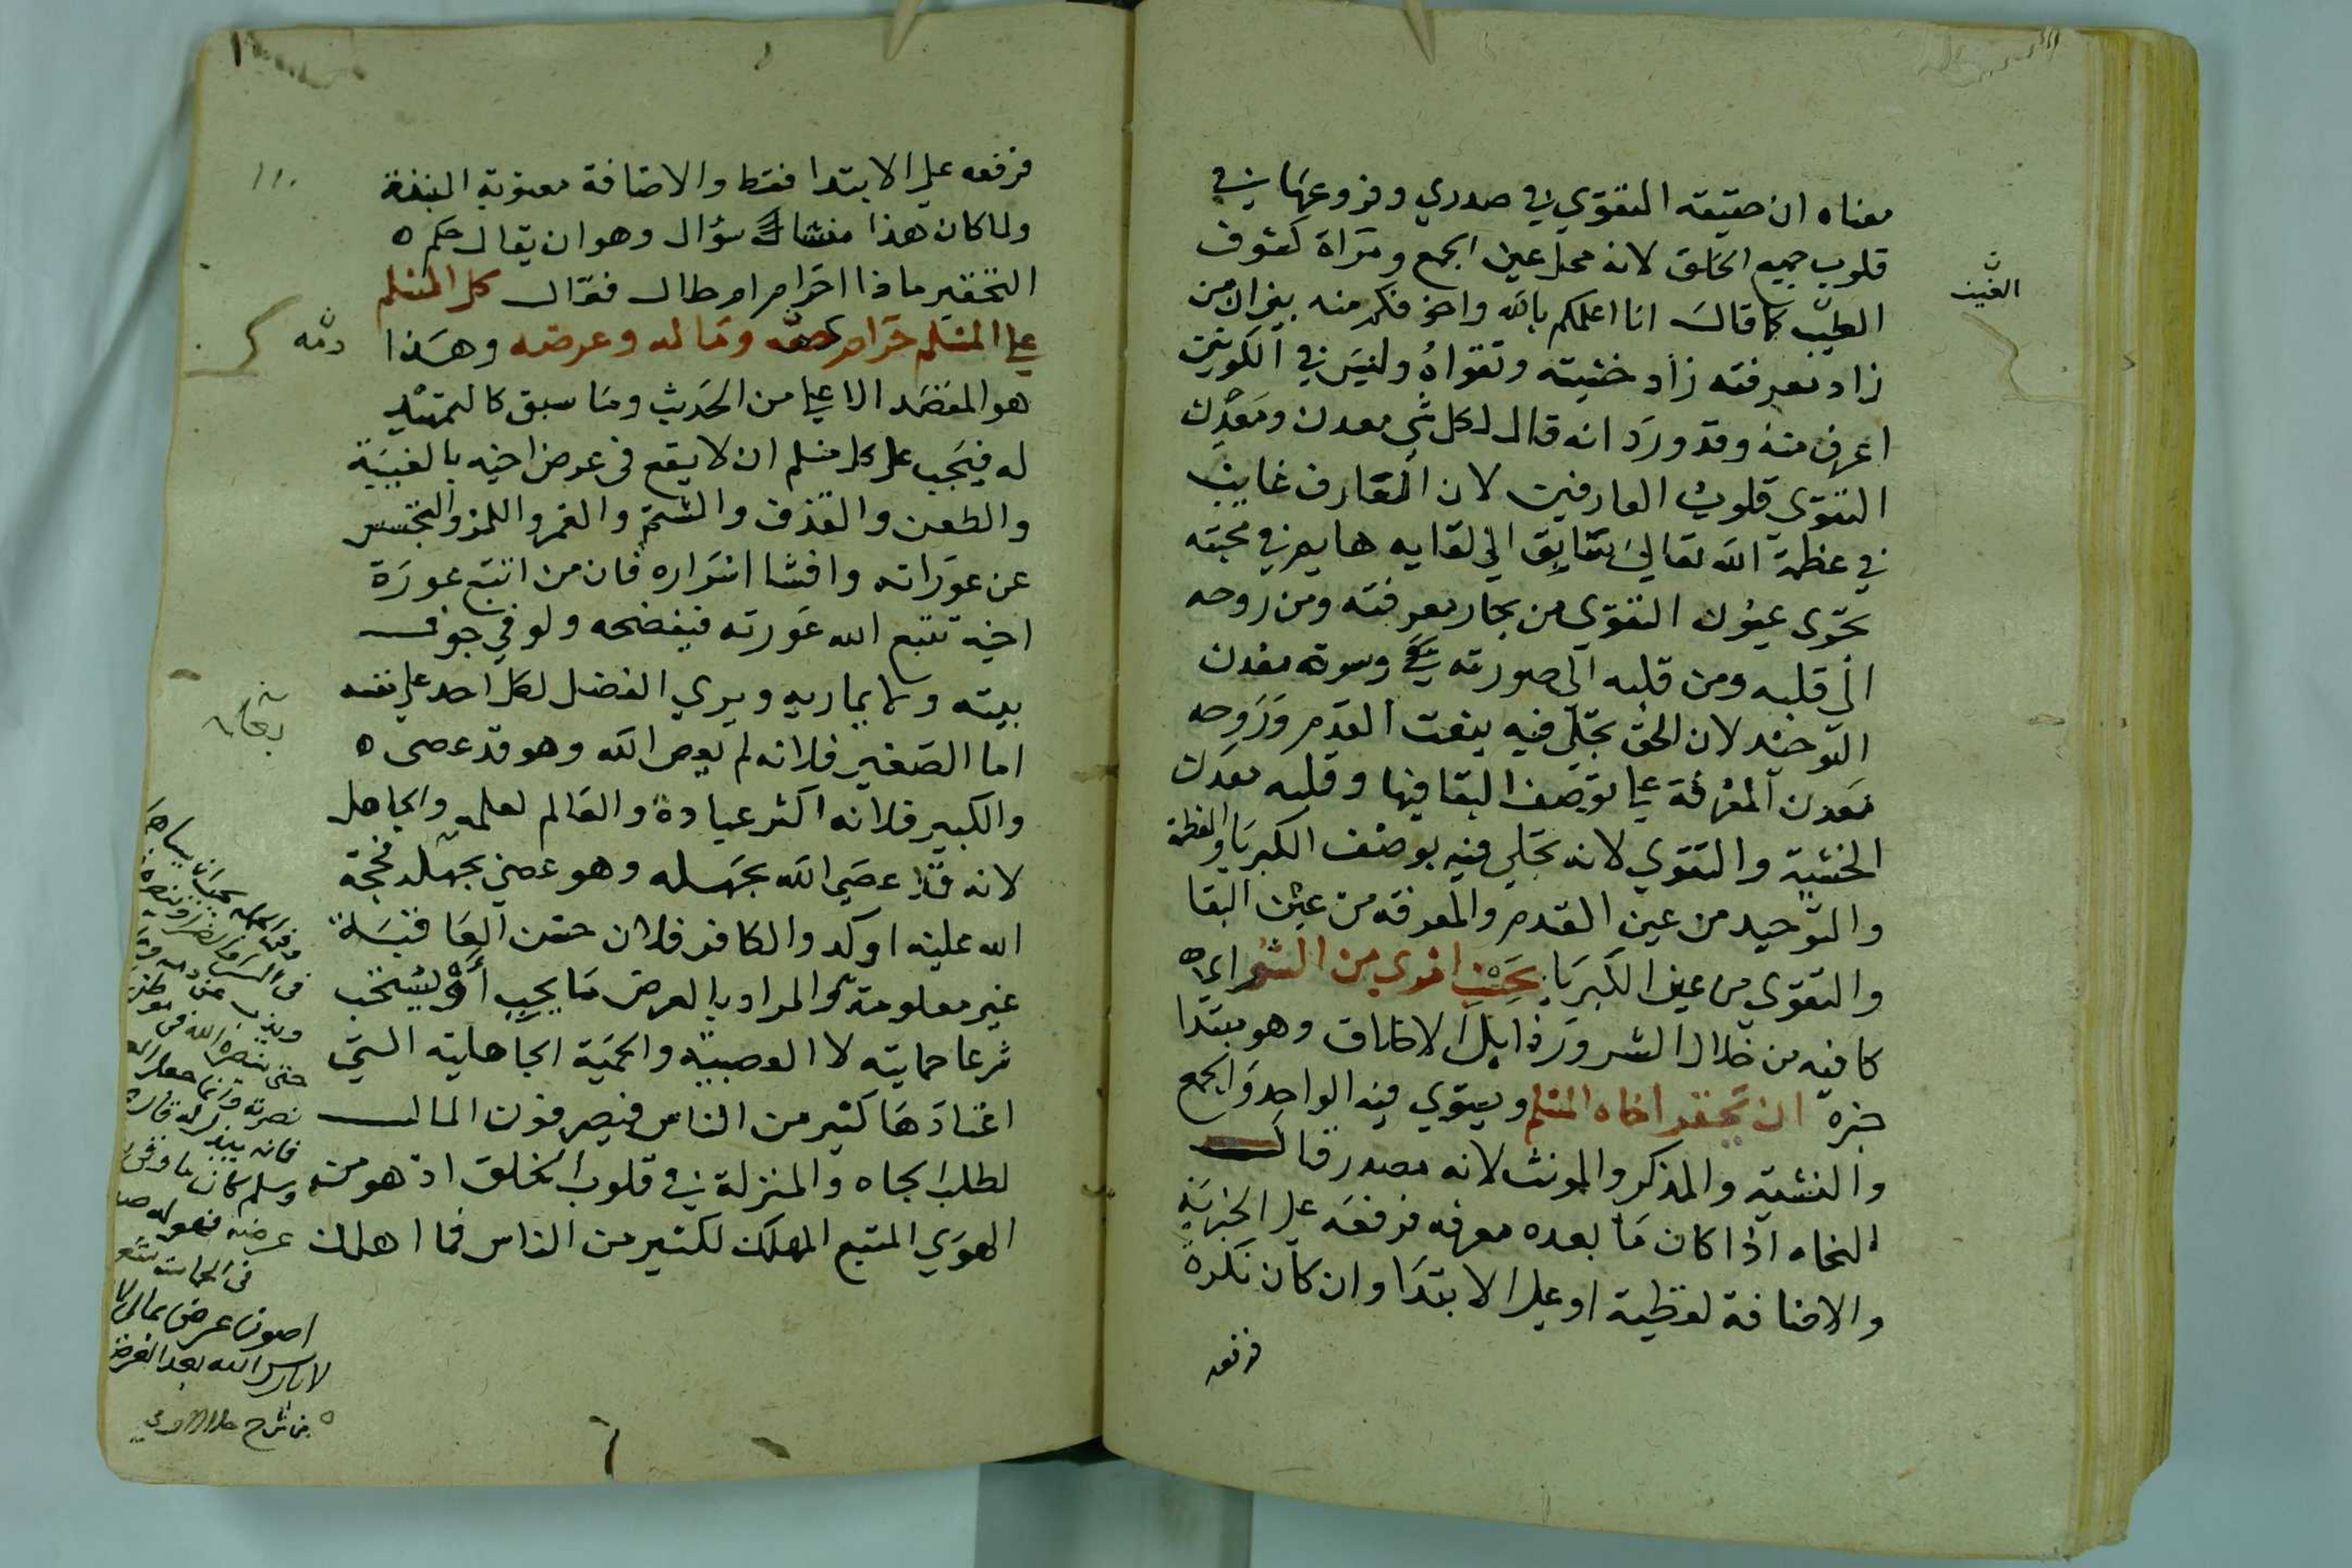 معناه ان حقيقه التقوي في صدري وفروعها في
قلوب جميع الخلق لانه محل عين الجمع ومرآة كشوف
الغيب
الغيب كما قال انا اعلمكم بالله واخوفكم منه فان من
زاد معرفته زاد خشيته وتقواه وليس في الكونين
اعرف منه وقد ورد انه قال لكل شي معدن ومعدن
التقوي قلوب العارفين لان العارف غايب
في عظمة الله تعالي شايق الي لقايه هايم في محبته
تجري عيون التقوي من بحار معرفته ومن روحه
الي قلبه ومن قلبه الي صورته وسره معدن
التوحيد لان الحق تجلي فيه بنعت القدم وروحه
معدن المعرفة علي توصف البقا فيها وقلبه معدن
الخشية والتقوي لانه تجلي فيه بوصف الكبريا والعظمة
والتوحيد من عين القدم والمعرفه من عين البقا
والتقوي من عين الكبريا بحسب امري من الشر اي
كافيه من خلال الشر ورذايل الاخلاق وهو مبتدا
خبره ان يحقر اخاه المسلم ويستوي فيه الواحد والجمع
والتثنية والمذكر والمونث لانه مصدر قال
النحاه اذا كان ما بعده معرفه فرفعه علي الخبرية
والاضافة لفظية او علي الابتدا وان كان نكرة
فرفعه
١١٠
فرفعه علي الابتدا فقط والاضافة معنوية البتة
ولما كان هذا منشا سؤال وهو ان يقال حكم
التحقير ماذا احرام ام حلال فقال كل المسلم
علي المسلم حرام دمه وماله وعرضه وهذا
دمه
هو المقصد الاعلي من الحديث ومنا سبق كالتمهيد
له فيجب علي كل مسلم ان لا يقع في عرض اخيه بالغيبة
والطعن والقذف والشتم والغمز واللمز والتجسس
عن عوراته وافشا اسراره فان من اتبع عورة
اخيه تتبع الله عورته فيفضحه ولو في جوف
بيته ولا يماريه ويري الفضل لكل احد علي نفسه
اما الصغير فلانه لم يعص الله وهو قد عصي
والكبير فلانه اكثر عبادة والعالم لعلمه والجاهل
لانه قد عصي الله بجهله وهو عصي بجهله فحجة
الله عليه اوكد والكافر فلان حسن العاقبة
غير معلومة والمراد بالعرض ما يجب او يستحب
شرعا حمايته لا العصبية والحمية الجاهلية التي
اعتادها كثير من الناس فيصرفون المال
لطلب الجاه والمنزلة في قلوب الخلق اذ هو من
الهوي المتبع المهلك لكثير من الناس فما اهلك
حتي ينصره الله في موطن
نصرته
فان
وسلم كان ما وقي
عرضه فهو له صد
في
اصون عرض بمالي لا
لا بارك الله بعد العرض
من شرح